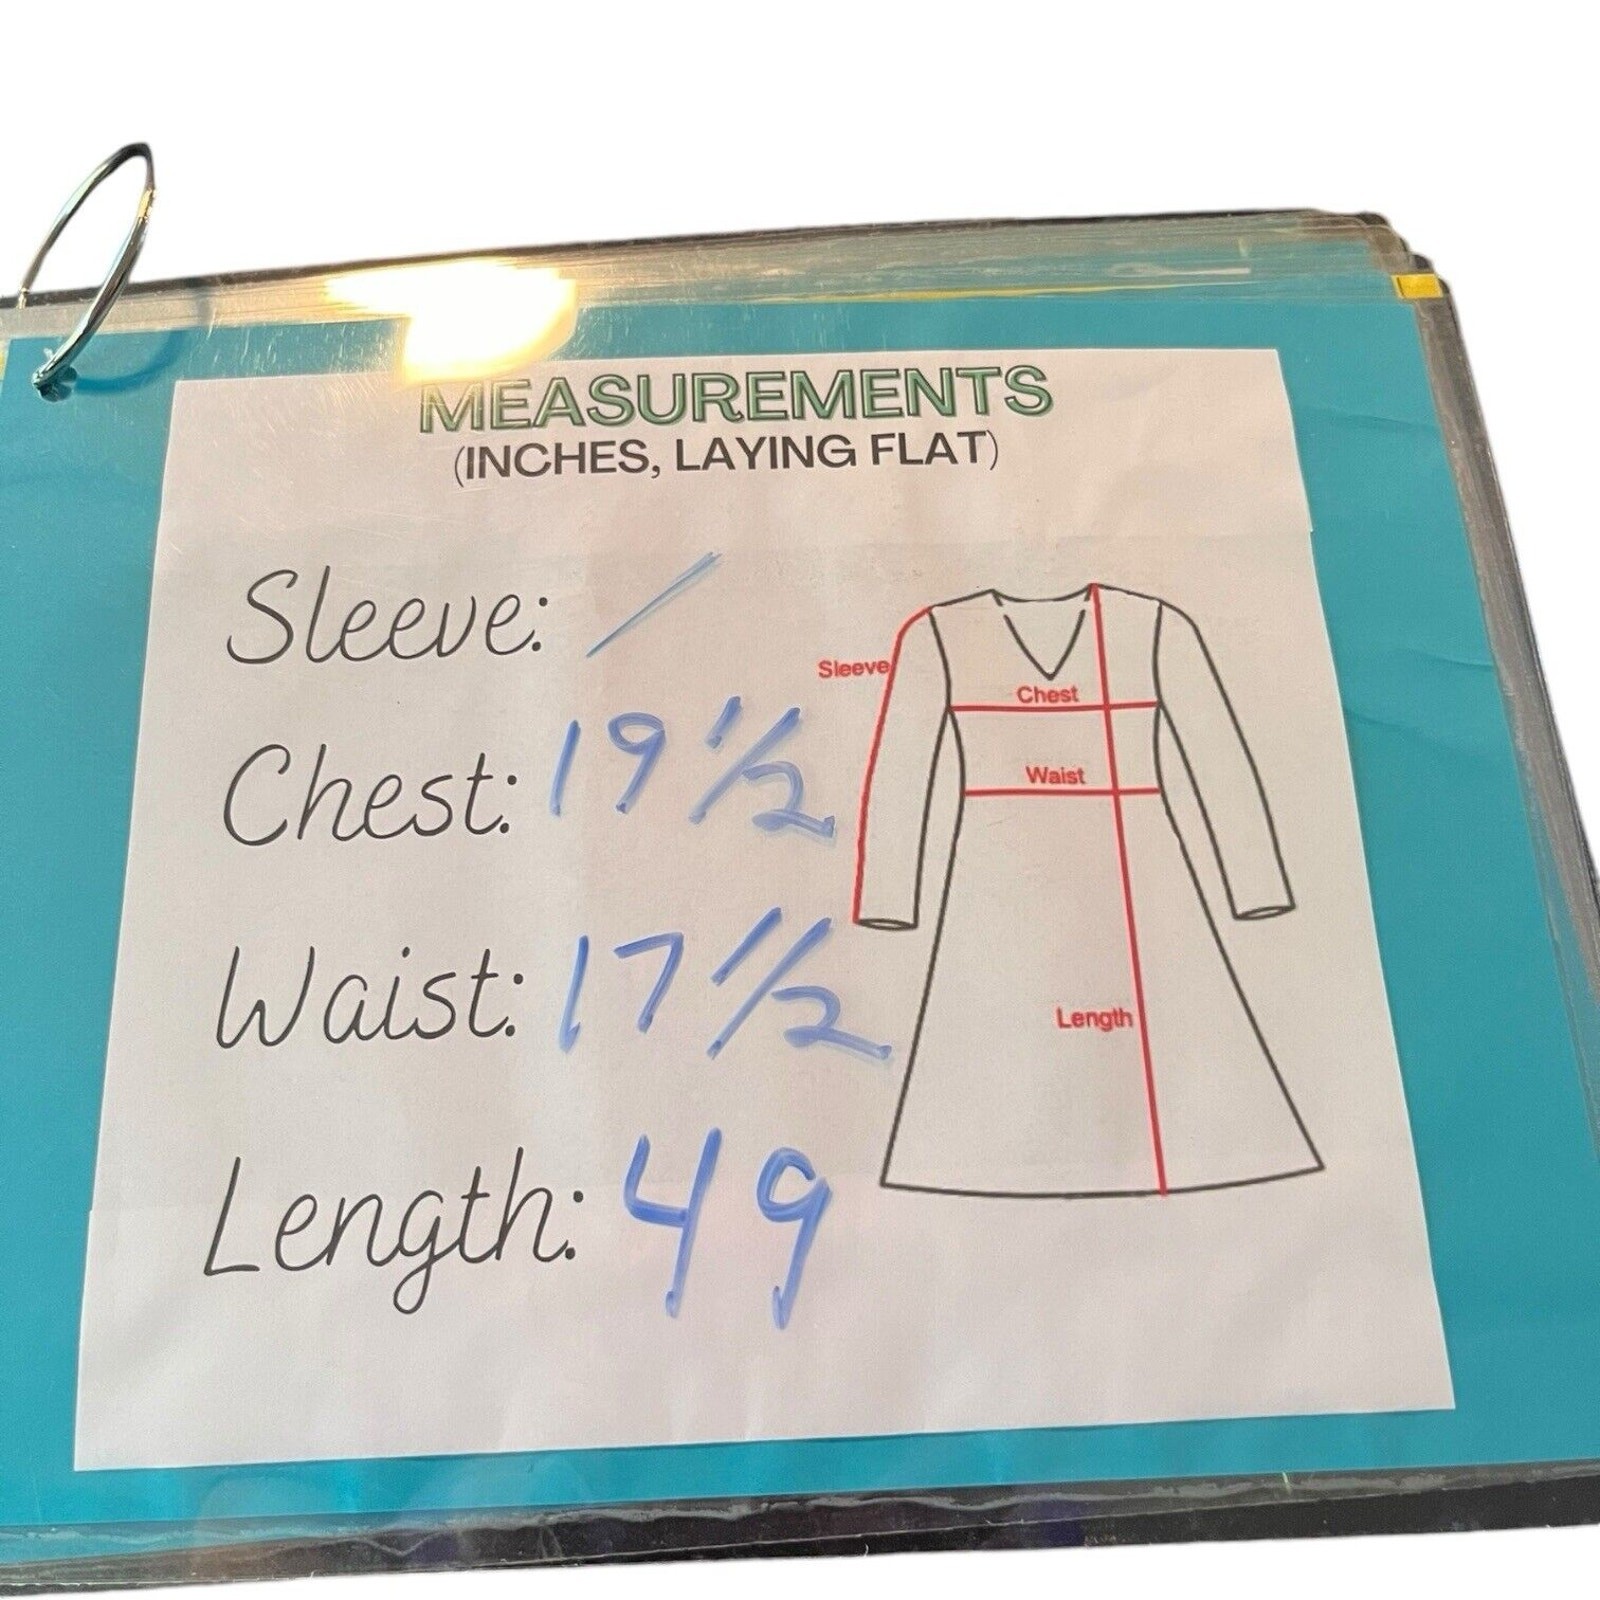 MEASUREMENTS
(INCHES, LAYING FLAT)
Sleeve: /
Chest: 19 1/2
Waist: 17 1/2
Length: 49
Sleeve
Chest
Waist
Length